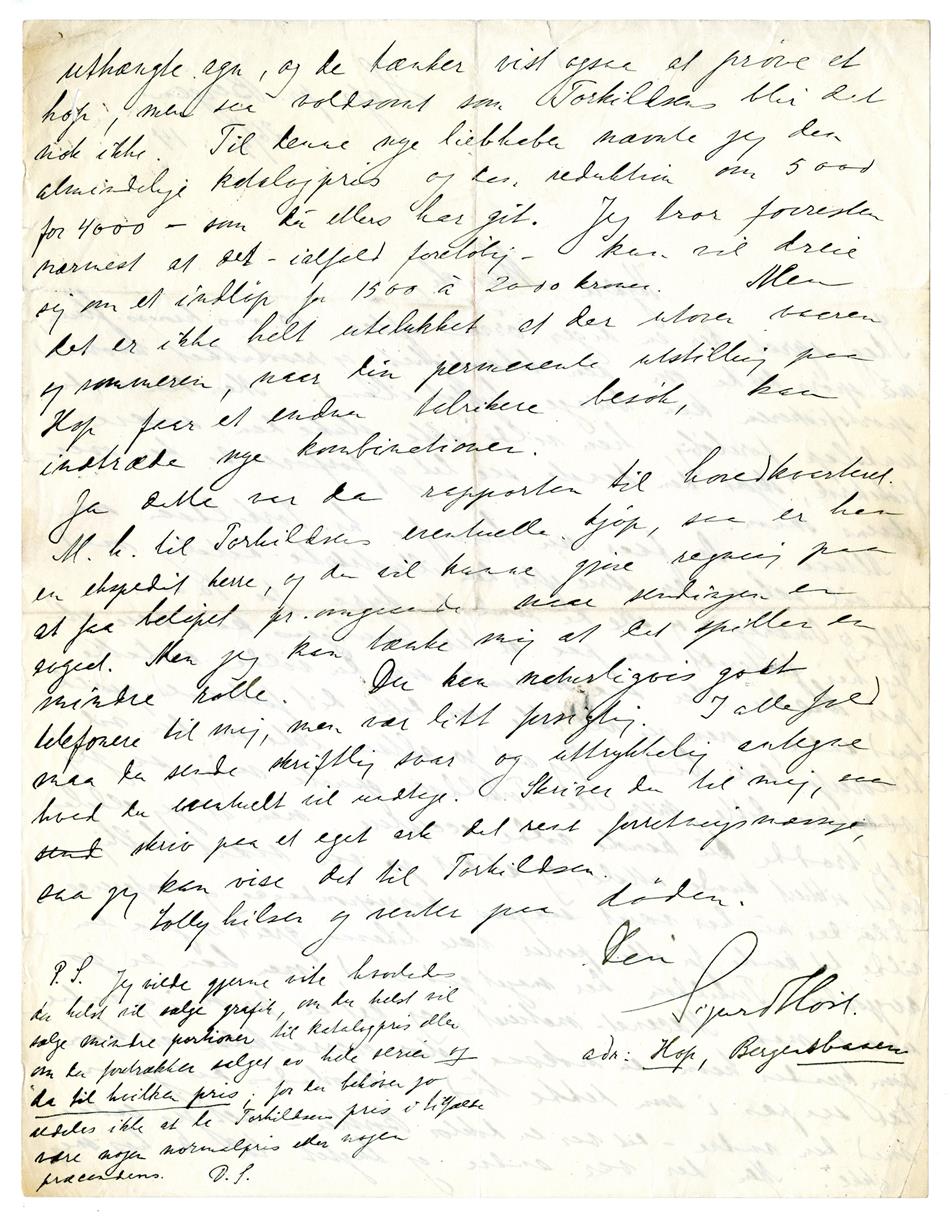 uthængte agn, og de tænker vist ogsaa at prøve et
hop, men saa voldsomt som Torkildsens blir det
nok ikke. Til denne nye liebhaber nævnte jeg den
almindelige katalogpris og den reduktion om 5000
for 4000 – som du ellers har git. Jeg tror forresten
nærmest at det – ialfald foreløbig – kun vil dreie
sig om et indkjøp for 1500 à 2000 kroner. Men
det er ikke helt utelukket at der utover vaaren
og sommeren, naar din permanente utstilling paa
Hop faar et endnu talrikere besøk, kan
indtræde nye kombinationer.
Ja dette var da rapporten til hovedkvarteret.
M. h. til Torkildsens eventuelle kjøp, saa er han
en ekspedit herre, og du vil kunne gjøre regning paa
at faa beløpet pr. omgaaende naar sendingen er
avgaat. Men jeg kan tænke mig at det spiller en
mindre rolle. Du kan naturligvis godt
telefonere til mig, men vær litt forsigtig. I alle fald
maa du sende skriftlig svar og uttrykkelig antegne
hvad du eventuelt vil vedlægge. Skriver du til mig, saa
send skriv paa et eget ark det rent forretningsmæssige,
saa jeg kan vise det til Torkildsen.
Lolly hilser og venter paa døden.
Din
Sigurd Høst.
adr: Hop, Bergensbanen
P.S. Jeg vilde gjerne vite hvorledes
du helst vil sælge grafik, om du helst vil
sælge mindre portioner til katalogpris eller
om du foretrækker salget av hele serier og
da til hvilken pris; for der behøver jo
saaledes ikke at la Torkildsens pris i tilfælde
være nogen normalpris eller nogen
præcedens. D.S.